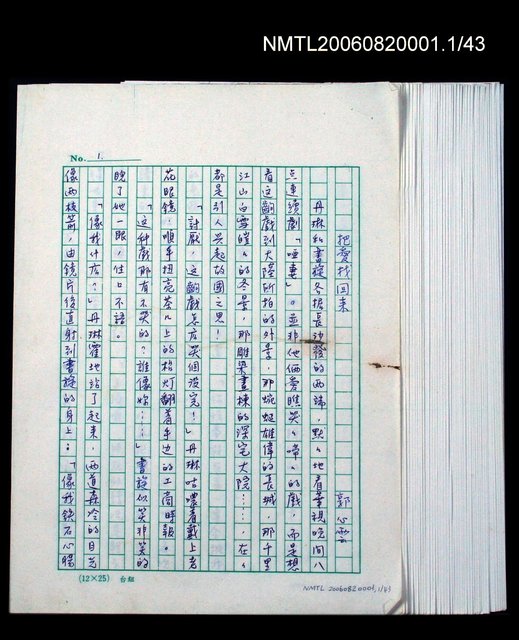 NMTL20060820001.1/43
No. 1.
把愛找回來
郭心雲
丹琳和書旋各据長沙發的兩端，默々地看華視晚間八
点連續劇「啞妻」。並非他倆愛瞧哭々啼々的戲，而是想
看這齣戲到大陸所拍的外景，那蜿蜒雄偉的長城，那千里
江山白雪皚々的冬景，那雕梁畫棟的深宅大院……，在々
都是引人興起故國之思！
「討厭，這齣戲怎應哭個沒完！」丹琳咕噥着戴上老
花眼鏡，順手扭亮茶几上的枱灯翻着手边的工商時報。
「這种戲那有不哭的？誰像妳……」書旋似笑非笑的
睨了她一眼，住口不語。
「像我什店？」丹琳霍地站了起來，兩道森冷的目光
像兩枝箭，由鏡片後直射到書旋的身上：「像我鉄石心腸
(12×25) 台組
NMTL 20060820001.1/43